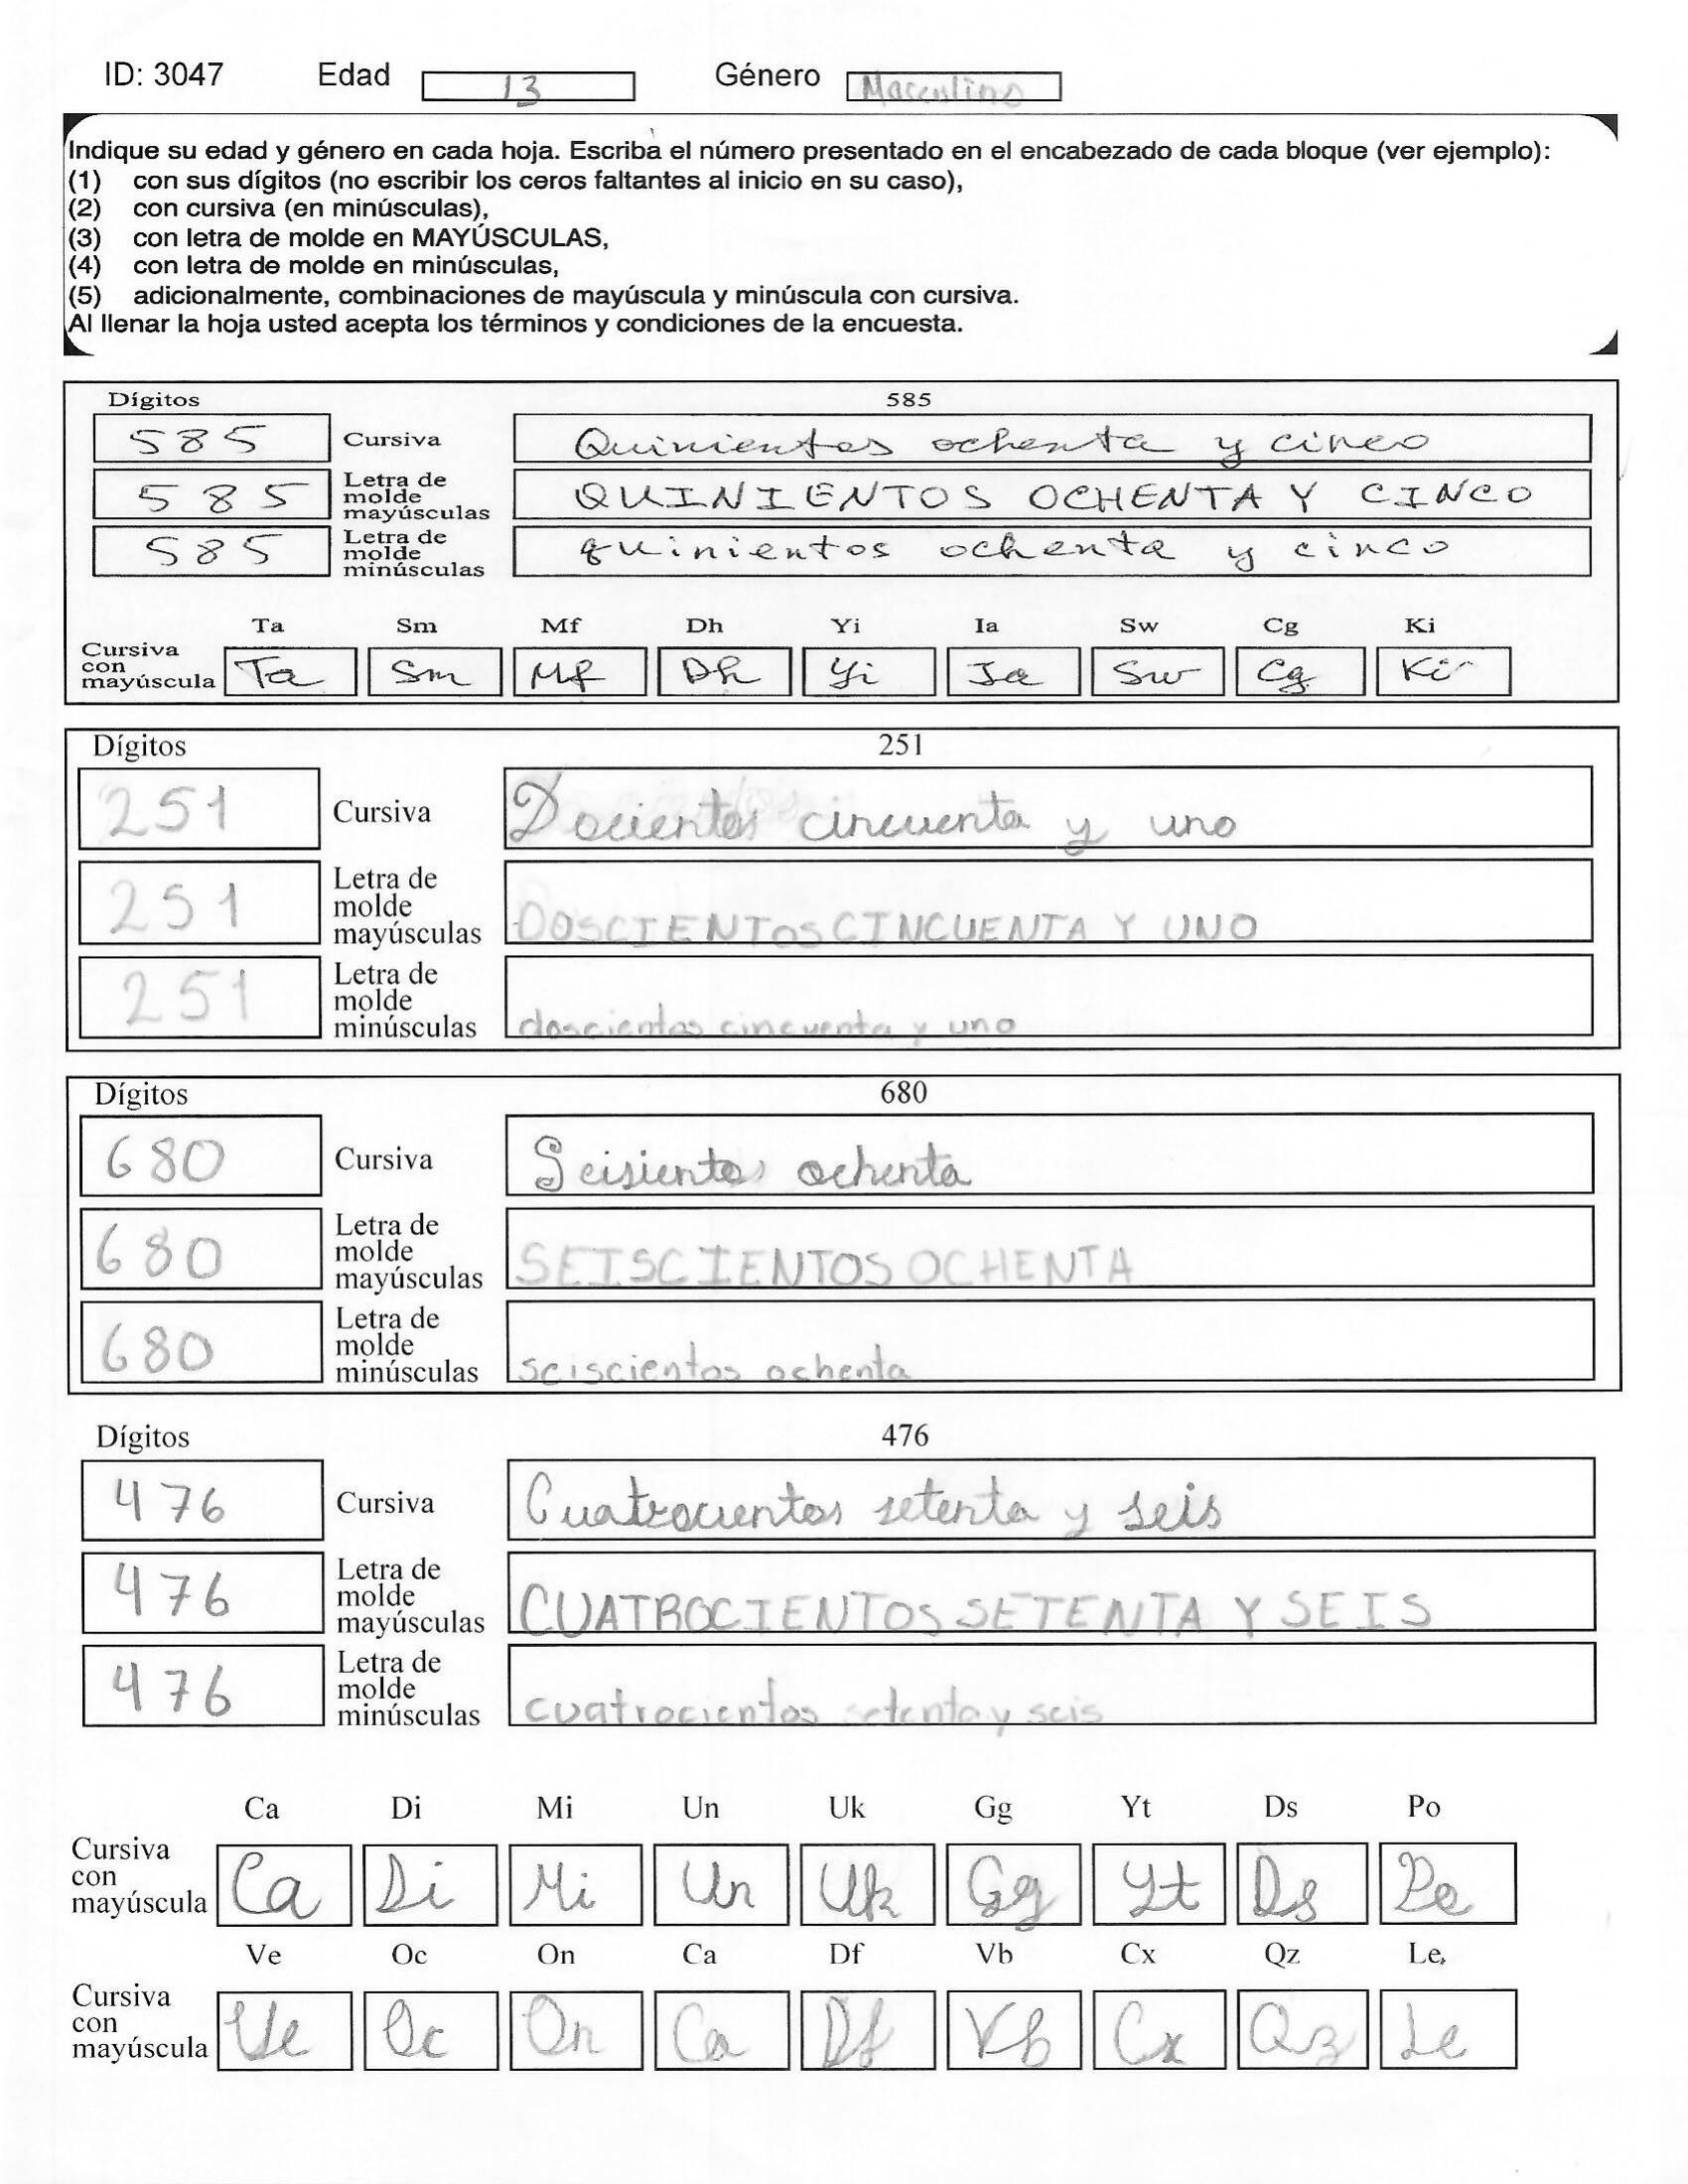 ID: 3047 Edad 13 Género Masculino
Indique su edad y género en cada hoja. Escriba el número presentado en el encabezado de cada bloque (ver ejemplo):
(1) con sus dígitos (no escribir los ceros faltantes al inicio en su caso),
(2) con cursiva (en minúsculas),
(3) con letra de molde en MAYÚSCULAS,
(4) con letra de molde en minúsculas,
(5) adicionalmente, combinaciones de mayúscula y minúscula con cursiva.
Al llenar la hoja usted acepta los términos y condiciones de la encuesta.
Dígitos 585
585 Cursiva Quinientos ochenta y cinco
585 Letra de molde mayúsculas QUINIENTOS OCHENTA Y CINCO
585 Letra de molde minúsculas quinientos ochenta y cinco
Ta Sm Mf Dh Yi Ia Sw Cg Ki
Cursiva con mayúscula Ta Sm Mf Dh Yi Ia Sw Cg Ki
Dígitos 251
251 Cursiva Docientos cincuenta y uno
251 Letra de molde mayúsculas DOSCIENTOS CINCUENTA Y UNO
251 Letra de molde minúsculas doscientos cincuenta y uno
Dígitos 680
680 Cursiva Seisientos ochenta
680 Letra de molde mayúsculas SEISCIENTOS OCHENTA
680 Letra de molde minúsculas seiscientos ochenta
Dígitos 476
476 Cursiva Cuatrocientos setenta y seis
476 Letra de molde mayúsculas CUATROCIENTOS SETENTA Y SEIS
476 Letra de molde minúsculas cuatrocientos setenta y seis
Ca Di Mi Un Uk Gg Yt Ds Po
Cursiva con mayúscula Ca Di Mi Un Uk Gg Yt Ds Po
Ve Oc On Ca Df Vb Cx Qz Le
Cursiva con mayúscula Ve Oc On Ca Df Vb Cx Qz Le